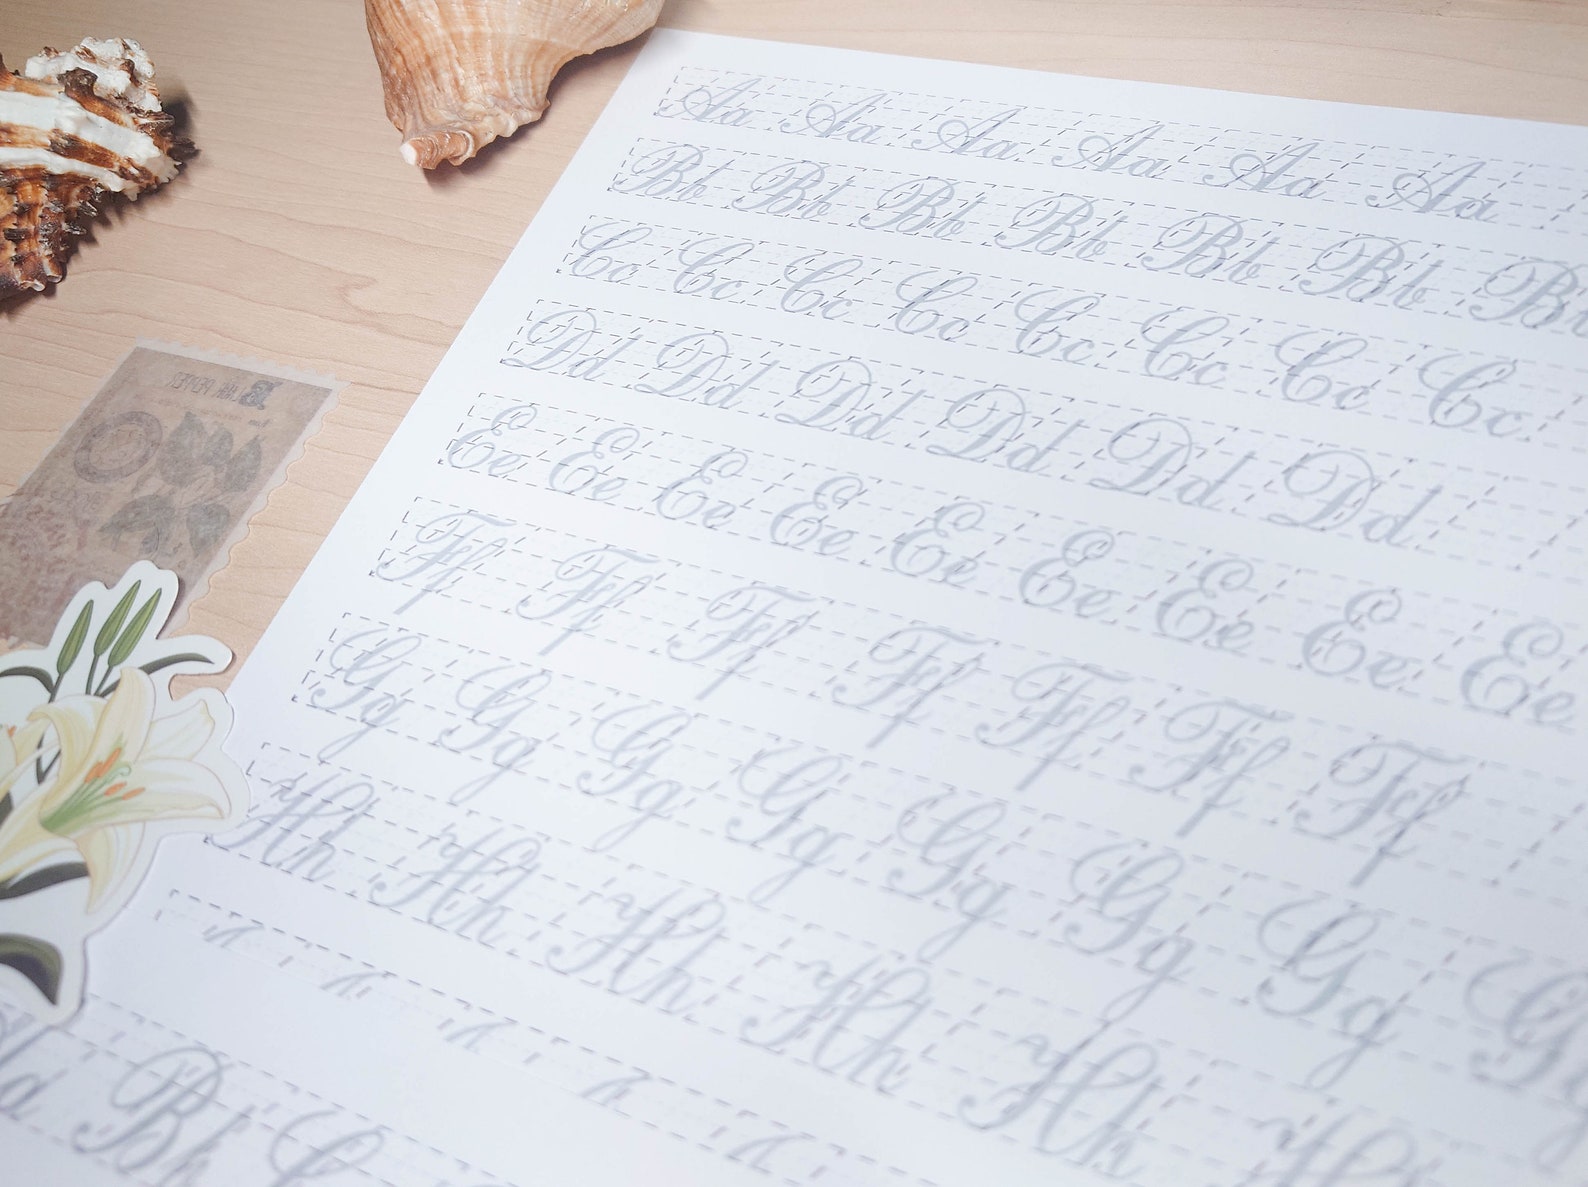 Aa Aa Aa Aa Aa Aa
Bb Bb Bb Bb Bb Bb B
Cc Cc Cc Cc Cc Cc Cc Cc
Dd Dd Dd Dd Dd Dd Dd
Ee Ee Ee Ee Ee Ee Ee Ee Ee
Ff Ff Ff Ff Ff Ff Ff
Gg Gg Gg Gg Gg Gg Gg G
Hh Hh Hh Hh Hh H